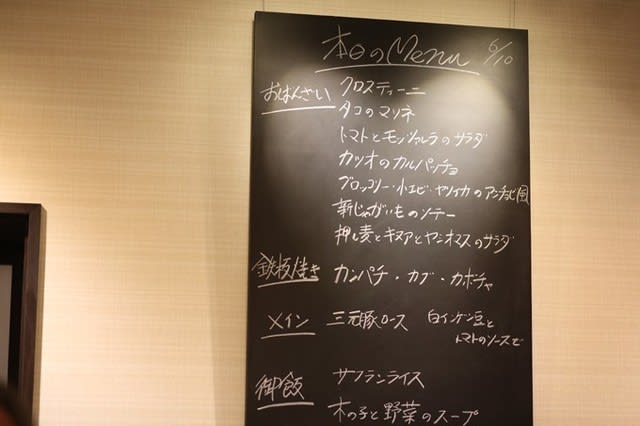 本日のMenu 6/10
おばんざい クロスティーニ
タコのマリネ
トマトとモッツァレラのサラダ
カツオのカルパッチョ
ブロッコリー・小エビ・ヤリイカのアンチョビ風
新じゃがいものソテー
押し麦とキヌアとヤニオマスのサラダ
鉄板焼き カンパチ・カブ・カボチャ
メイン 三元豚ロース 白インゲン豆と
トマトのソースで
御飯 サフランライス
木の子と野菜のスープ